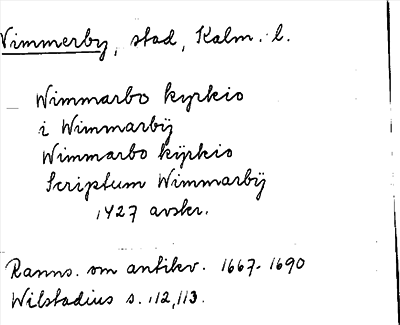 Vimmerby, stad, Kalm. l.
Wimmarbo kyrkio
i Wimmarbÿ
Wimmarbo kÿrkio
Scriptum Wimmarbÿ
1427 avskr.
Ranns. om antikv. 1667-1690
Wilstadius s. 112, 113.